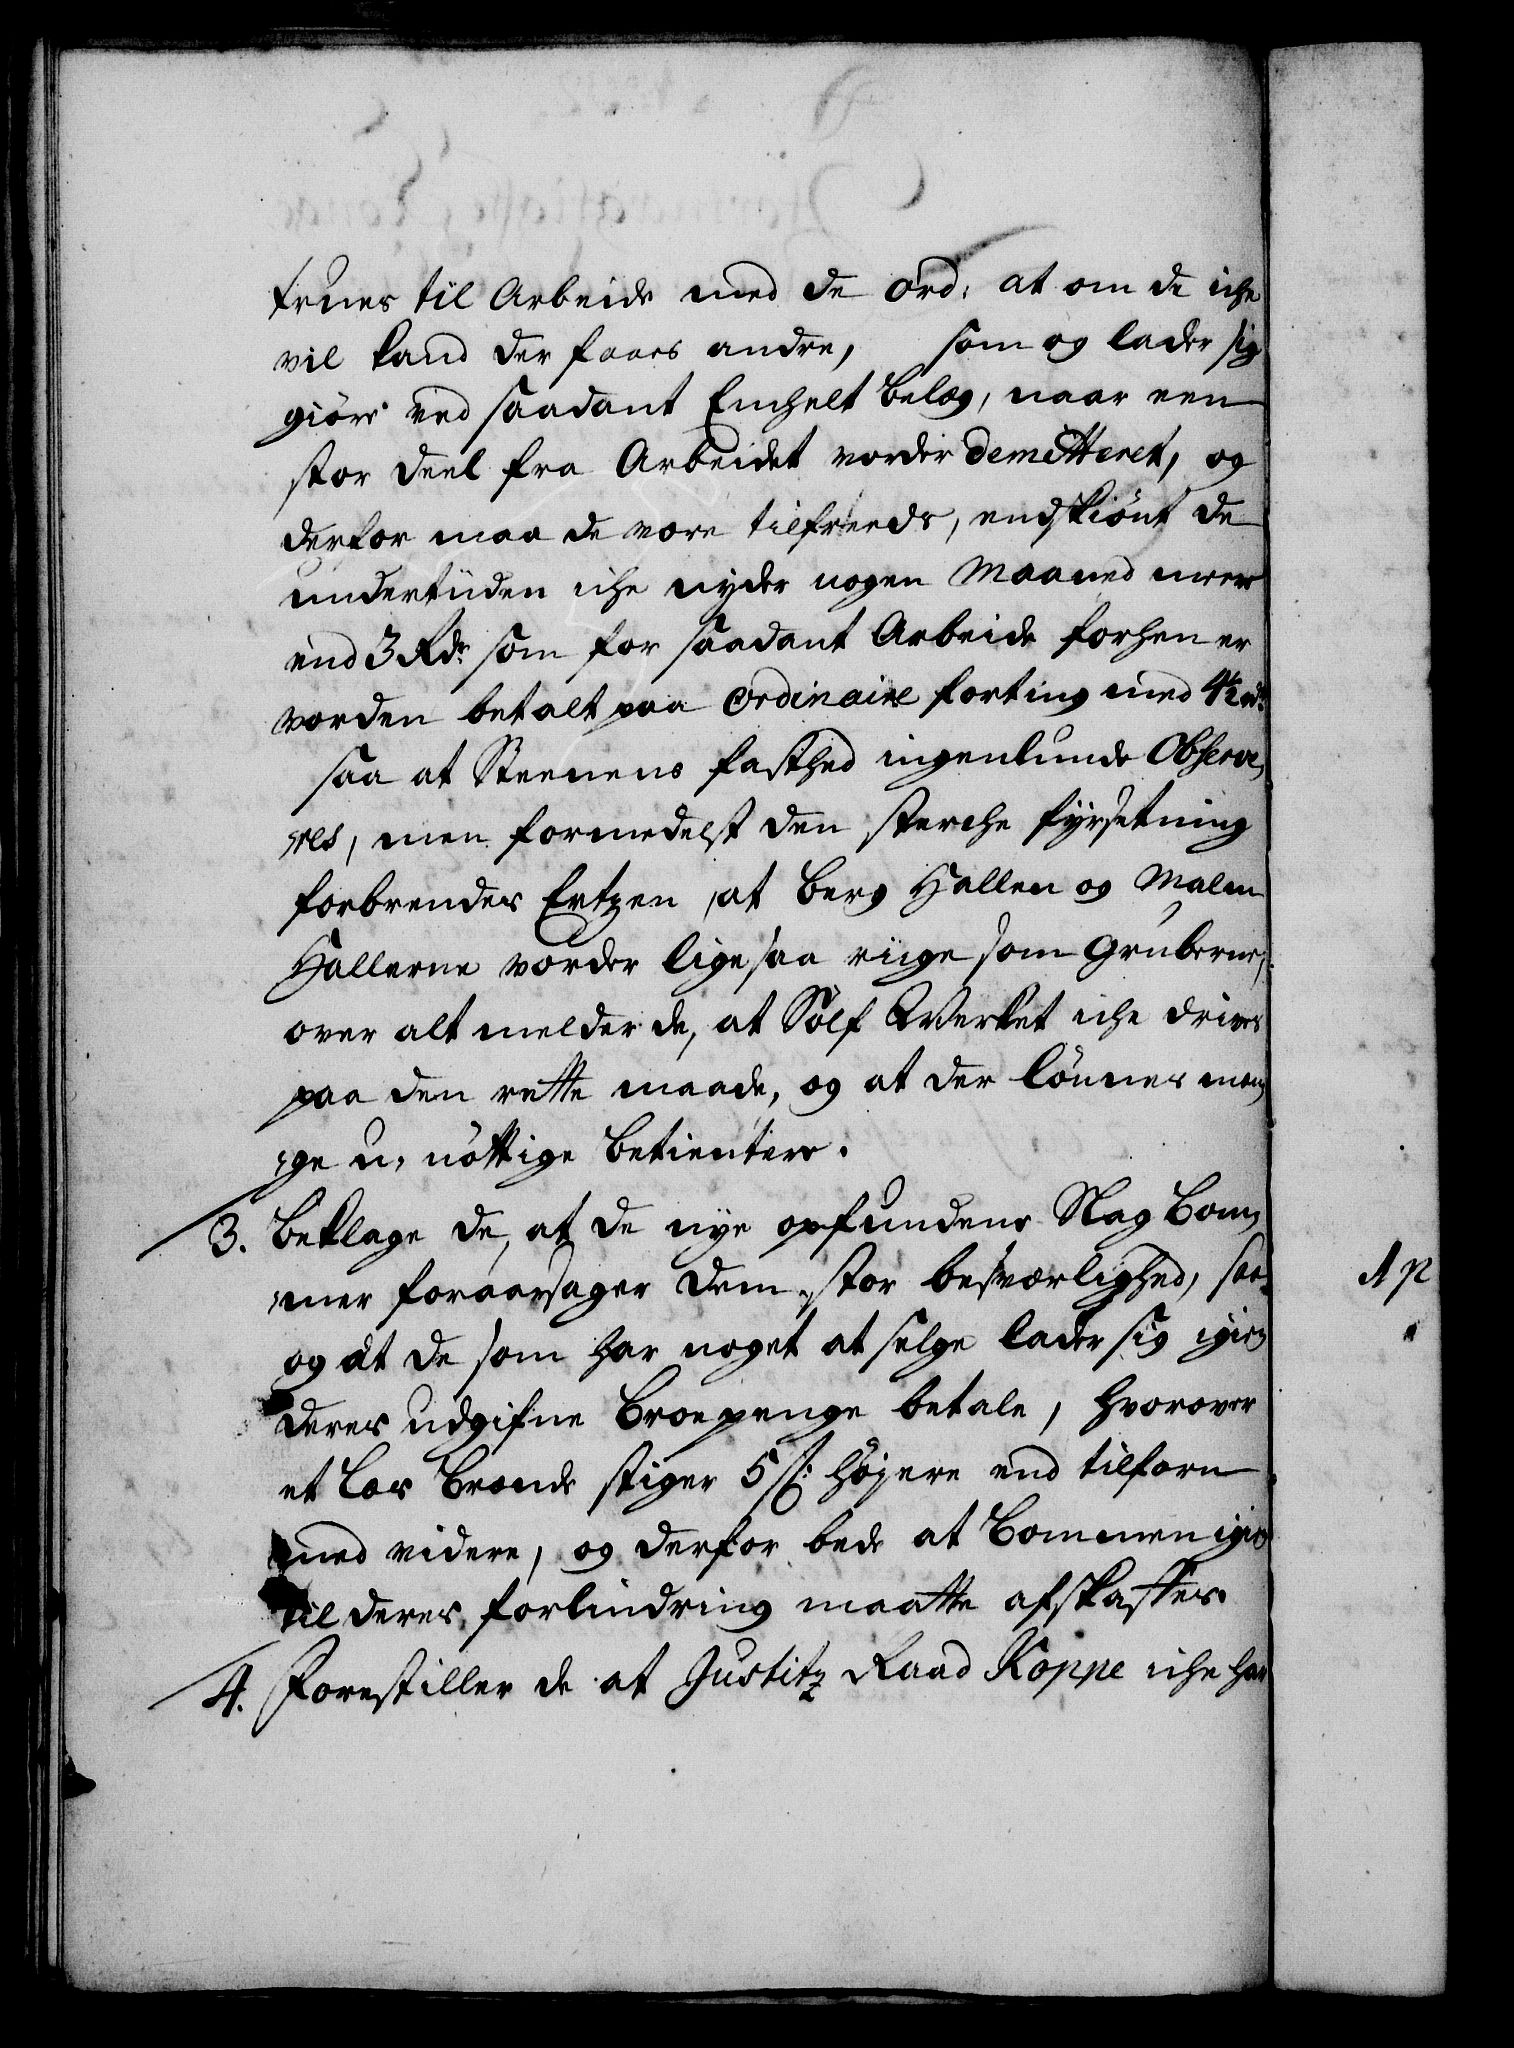 trues til Arbeide med de ord: at om de iche
vil kand der faaes andre, som og lader sig
giöre ved saadant Enchelt belæg, naar een
stor deel fra Arbeidet vorder demitteret, og
derfor maa de være tilfreeds, endskiönt de
undertiiden iche nyder nogen Maaned meere
end 3 Rdr som for saadant Arbeide forhen er
vorden betalt paa ordinaire forting med 4½ rdr
saa at Steenens fasthed ingenlunde Observe,
,res, men formedelst den sterche fyrsetning
forbrendes Ertzen, at berg Hallen og Malm
Hallerne vorder lige saa riige som Gruberne,
over alt melder de, at Sölf Werket iche drives
paa den rette maade, og at der lönnes man,
,ge u, nöttige betientere.
3. beklage de, at de nye opfundene Slag bom,
,mer foraarsager dem stor besværlighed, saa
og at de som har noget at selge lader sig igien
deres udgifne Broepenge betale, hvorover
et læs brænde stiger 5 s: höjere end tilforn
med videre, og derfor bede at bommen igien
til deres forlindring maatte afskaffes.
4. Forestiller de at Justitz Raad Koppe iche har
Ap